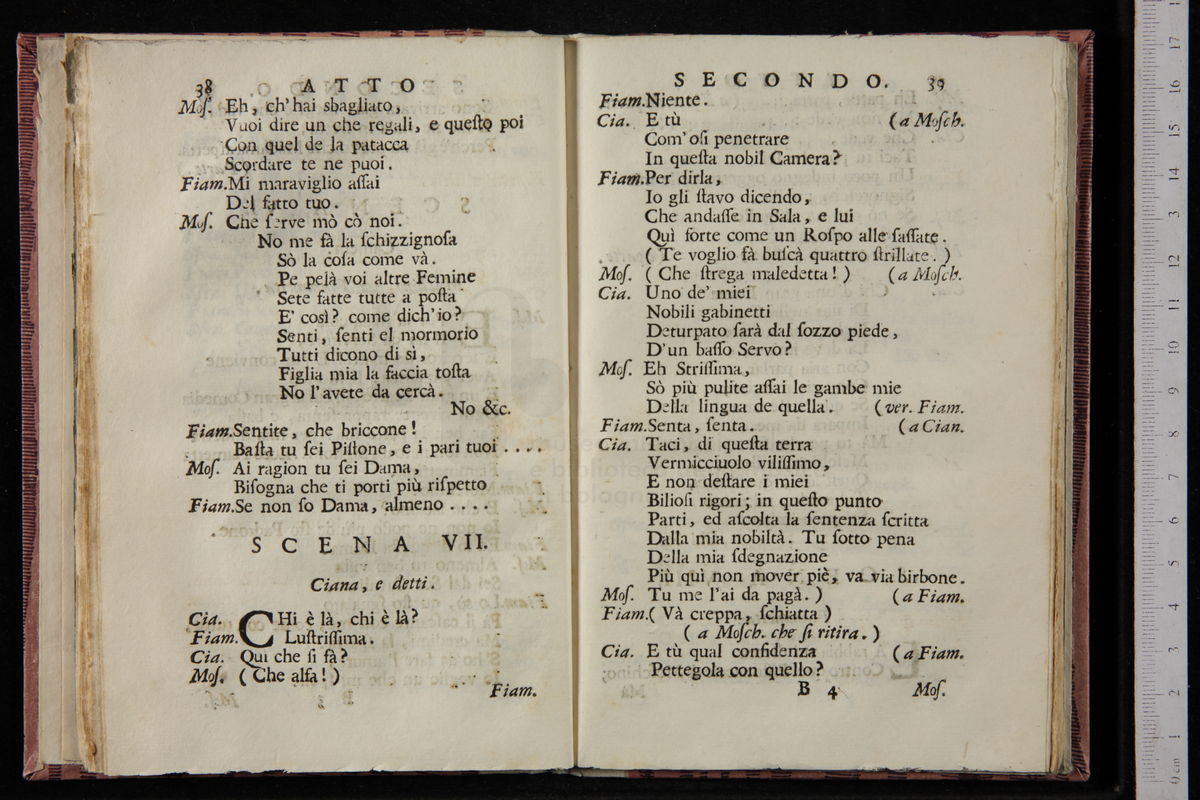 38 ATTO
Moſ. Eh, ch'hai sbagliato,
Vuoi dire un che regali, e queſto poi
Con quel de la patacca
Scordare te ne puoi.
Fiam.Mi maraviglio aſſai
Del fatto tuo.
Moſ. Che ſerve mò cò noi.
No me fà la ſchizzignoſa
Sò la coſa come và.
Pe pelà voi altre Femine
Sete fatte tutte a poſta
E' così? come dich'io?
Senti, ſenti el mormorio
Tutti dicono di sì,
Figlia mia la faccia toſta
No l'avete da cercà.
No &c.
Fiam.Sentite, che briccone!
Baſta tu ſei Piſtone, e i pari tuoi . . . .
Moſ. Ai ragion tu ſei Dama,
Biſogna che ti porti più riſpetto
Fiam.Se non ſo Dama, almeno . . . .
SCENA VII.
Ciana, e detti.
Cia. CHi è là, chi è là?
Fiam. Luſtriſſima.
Cia. Qui che ſi fà?
Moſ. (Che alfa!)
Fiam.
SECONDO. 39
Fiam.Niente.
Cia. E tù (a Moſch.
Com'oſi penetrare
In queſta nobil Camera?
Fiam.Per dirla,
Io gli ſtavo dicendo,
Che andaſſe in Sala, e lui
Quì forte come un Roſpo alle ſaſſate.
(Te voglio fà buſcà quattro ſtrillate.)
Moſ. (Che ſtrega maledetta!) (a Moſch.
Cia. Uno de' miei
Nobili gabinetti
Deturpato ſarà dal ſozzo piede,
D'un baſſo Servo?
Moſ. Eh Striſſima,
Sò più pulite aſſai le gambe mie
Della lingua de quella. (ver. Fiam.
Fiam.Senta, ſenta. (a Cian.
Cia. Taci, di queſta terra
Vermicciuolo viliſſimo,
E non deſtare i miei
Bilioſi rigori; in queſto punto
Parti, ed aſcolta la ſentenza ſcritta
Dalla mia nobiltà. Tu ſotto pena
Della mia ſdegnazione
Più qui non mover piè, va via birbone.
Moſ. Tu me l'ai da pagà.) (a Fiam.
Fiam.(Và creppa, ſchiatta)
(a Moſch. che ſi ritira.)
Cia. E tù qual confidenza (a Fiam.
Pettegola con quello?
B 4 Moſ.